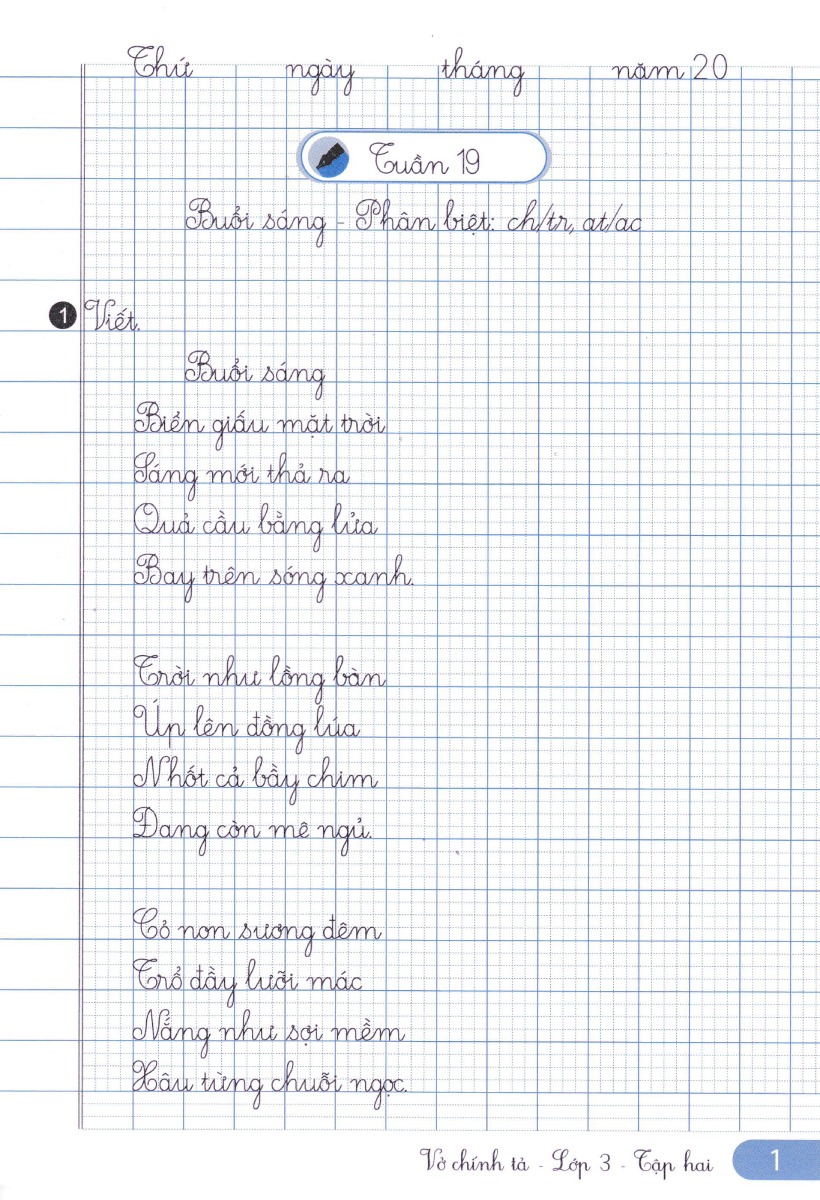 Thứ ngày tháng năm 20
Tuần 19
Buổi sáng - Phân biệt: ch/tr, at/ac
1 Viết.
Buổi sáng
Biển giấu mặt trời
Sáng mới thả ra
Quả cầu bằng lửa
Bay trên sóng xanh.
Trời như lồng bàn
Úp lên đồng lúa
Nhốt cả bầy chim
Đang còn mê ngủ.
Cỏ non sương đêm
Trổ đầy lưỡi mác
Nắng như sợi mềm
Xâu từng chuỗi ngọc.
Vở chính tả - Lớp 3 - Tập hai 1